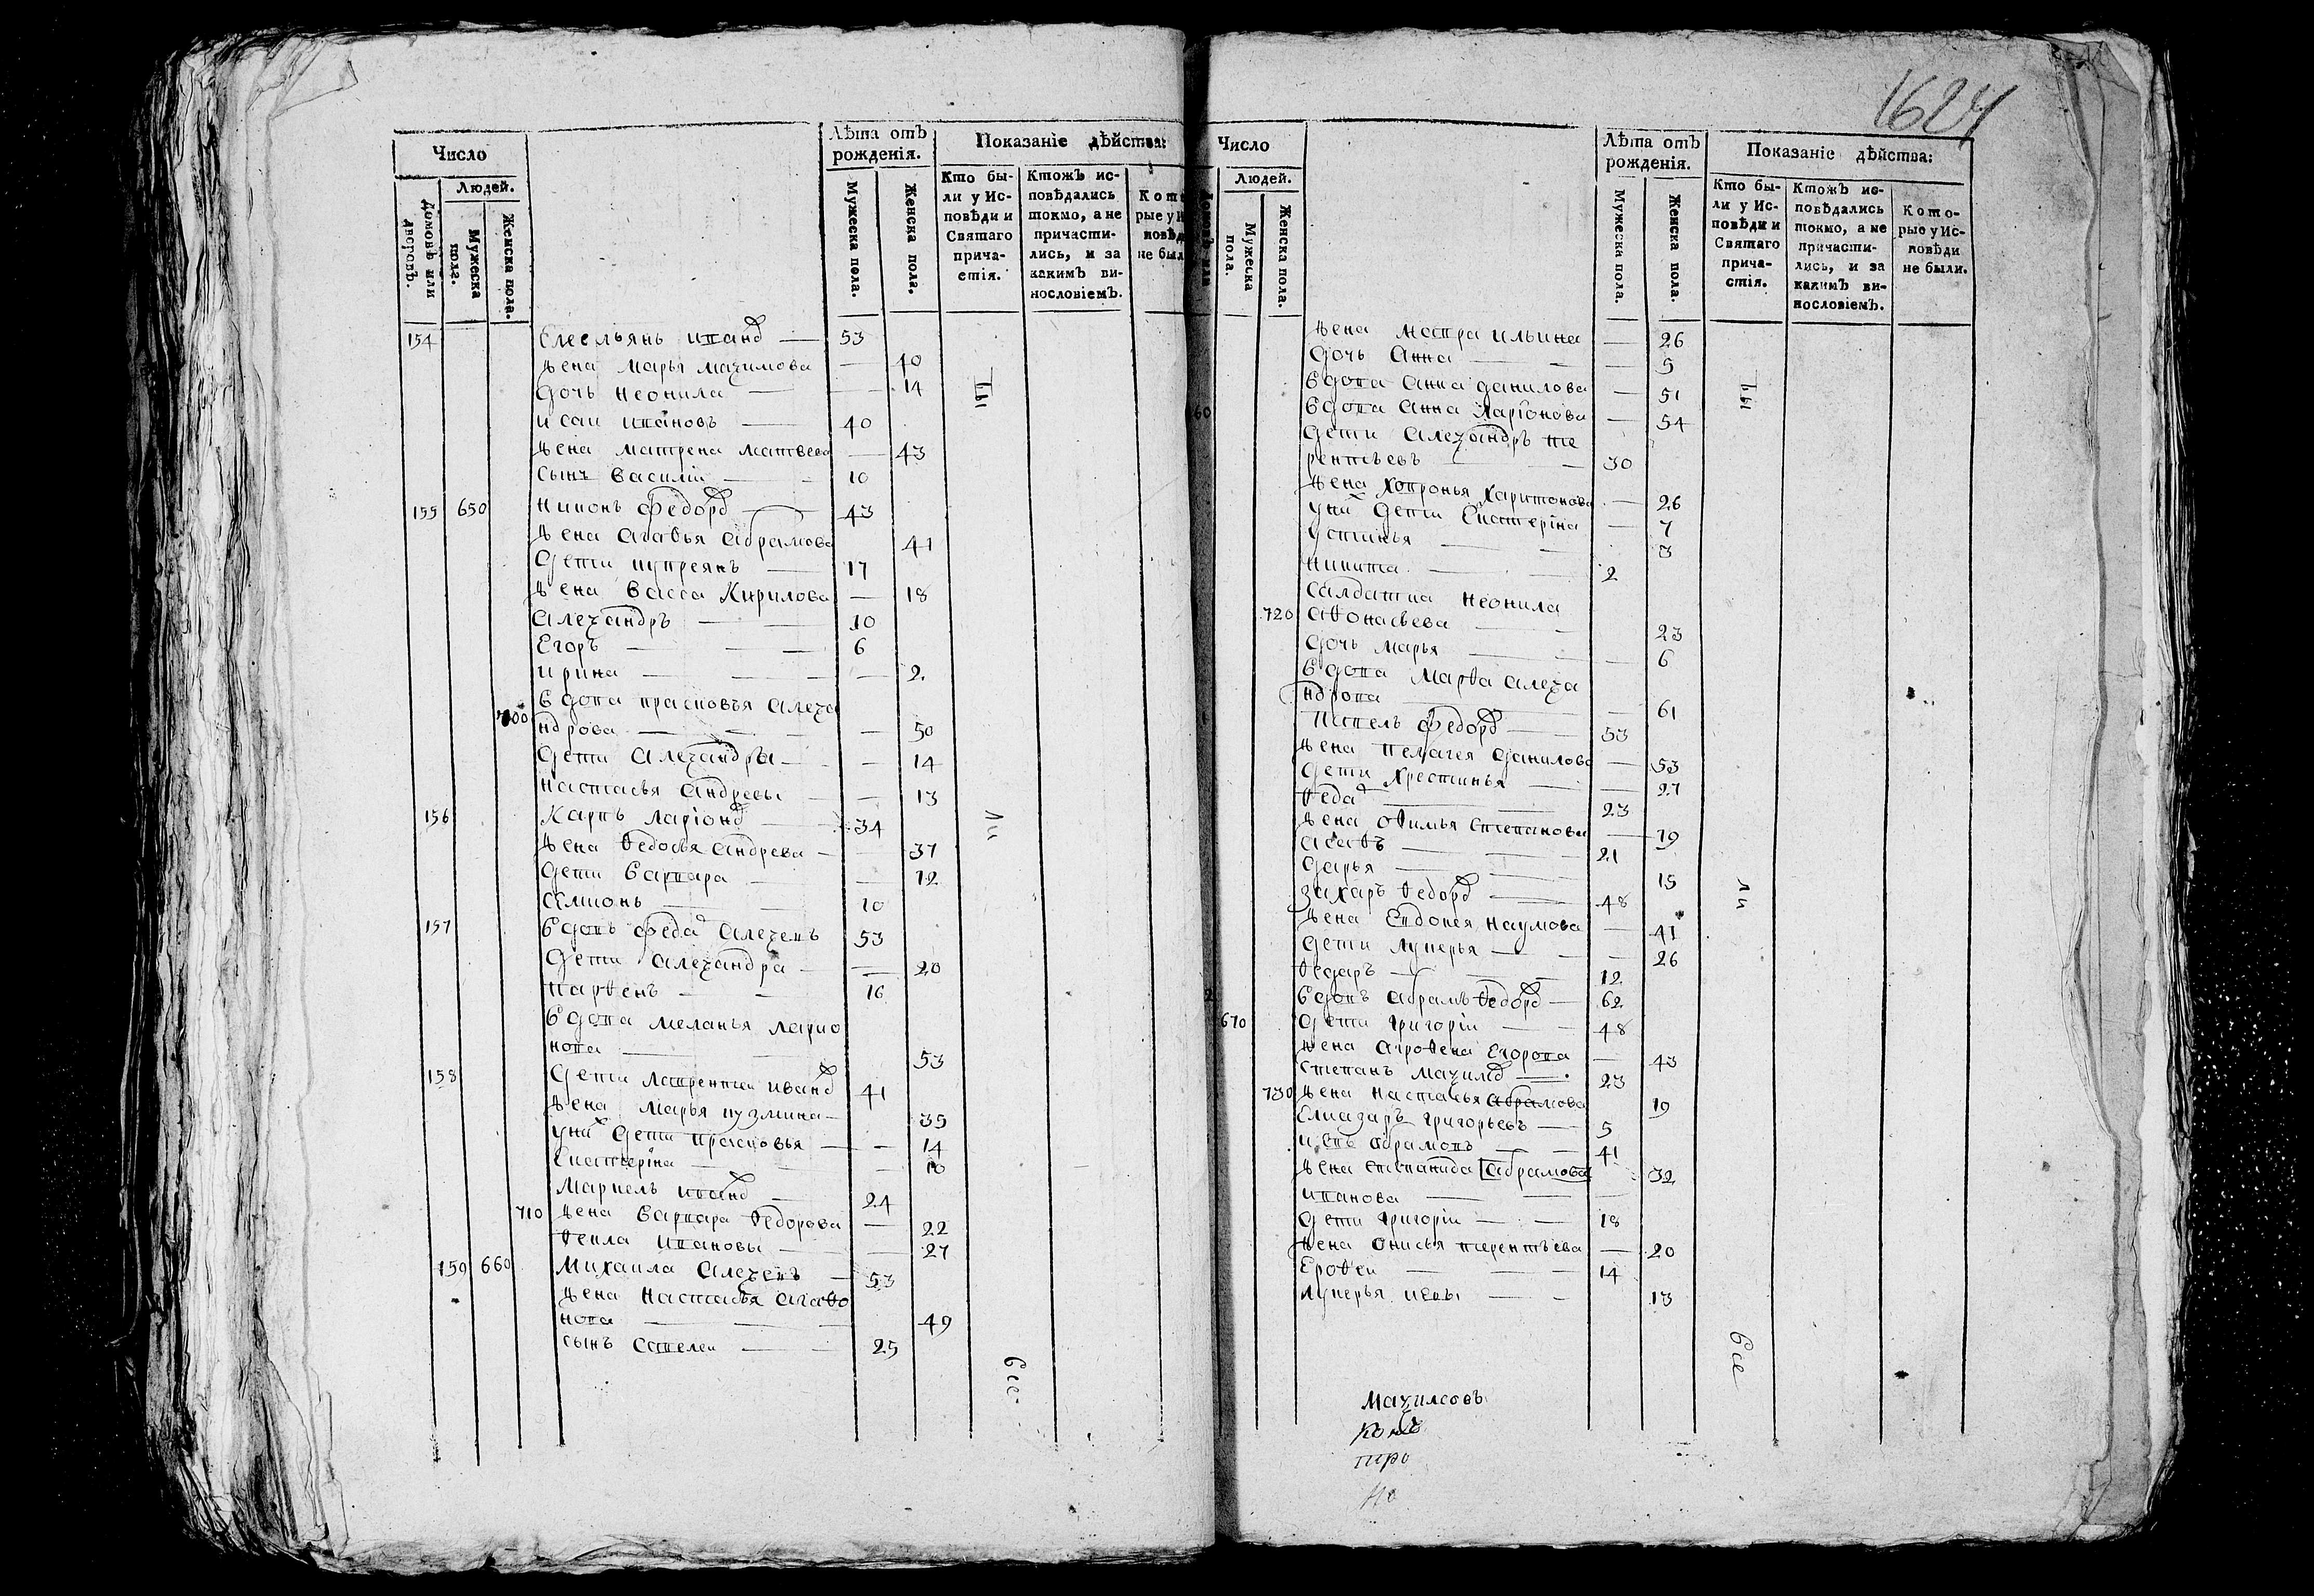 1624
Число
Людей.
Домовъ или дворовъ.
Мужеска пола.
Женска пола.
Лѣта отъ рожденія.
Мужеска пола.
Женска пола.
Показаніе дѣйства:
Кто бы-
ли у Ис-
повѣди и
Святаго
прича-
стія.
Ктожъ ис-
повѣдались
токмо, а не
причасти-
лись, и за
какимъ ви-
нословіемъ.
154 Емельянъ Иванов 53
Жена Марья Маѯимова — 40
Дочь Неонила — 14
Исаи Ивановъ — 40
Жена Матрена Матвеева — 43
Сынъ Василіи — 10
155 650 Никонъ Федоров — 43
Жена Агафья Абрамова 41
Дети Купреянъ — 17
Жена Васса Кирилова — 18
Алеѯандръ — 10
Егоръ — 6
Ирина — 2
Вдова Прасковья Алеѯа
700 ндрова — 50
Дети Алеѯандра — 14
Настасья Андреевы — 13
156 Карпъ Ларіонов — 34
Жена Ѳедосья Андрева — 37
Дети Варвара — 12
Семионъ — 10
157 Вдовъ Федор Алеѯеевъ 53
Дети Алеѯандра — 20
Парѳенъ — 16
Вдова Меланья Ларио
нова — 53
158 Дети Лаврентеи Иванов 41
Жена Марья Кузмина — 35
У них дети Прасковья — 14
Екатерина — 10
Маркелъ Иванов — 24
710 Жена Варвара Ѳедорова — 22
Ѳекла Ивановы — 27
159 660 Михаила Алеѯеевъ — 53
Жена Настасья Агаѳо
нова — 49
Сынъ Савелеи — 25
ты
ли
все
Число
Людей.
Мужеска пола.
Женска пола.
Лѣта отъ рожденія.
Мужеска пола.
Женска пола.
Показаніе дѣйства:
Кто бы-
ли у Ис-
повѣди и
Святаго
прича-
стія.
Ктожъ ис-
повѣдались
токмо, а не
причасти-
лись, и за
какимъ ви-
нословіемъ.
Кото-
рые у Ис-
повѣди
не были.
Жена Мавра Ильина — 26
Дочь Анна — 5
Вдова Анна Данилова — 51
60 Вдова Анна Ларіонова — 54
Дети Алеѯандръ Те
рентьевъ — 30
Жена Ховронья Харитонова — 26
У них дети Екатерина — 7
Устинья — 3
Никита — 2
Салдатка Неонила
720 Аѳонасьева — 23
Дочь Марья — 6
Вдова Марѳа Алеѯа
ндрова — 61
Павелъ Федоров — 53
Жена Пелагея Данилова — 53
Дети Христинья — 27
Ѳедор — 23
Жена Оѳимья Степанова — 19
21
Дарья — 15
Захаръ Ѳедоров — 48
Жена Евдокея Наумова — 41
Дети Лукерья — 26
Ѳедоръ — 12
Вдовъ Абрамъ Ѳедоров — 62
670 Дети Григоріи — 48
Жена Агроѳена Егорова — 43
Степанъ Маѯимов — 23
730 Жена Настасья Абрамова 19
Елиазаръ Григорьевъ — 5
Абрамовъ — 41
Жена Степанида Абрамова 32
Иванова —
Дети Григоріи — 18
Жена Онисья Терентьева — 20
Ероѳеи — 14
Лукерья — 13
ты
ли
все
Маѯимовъ